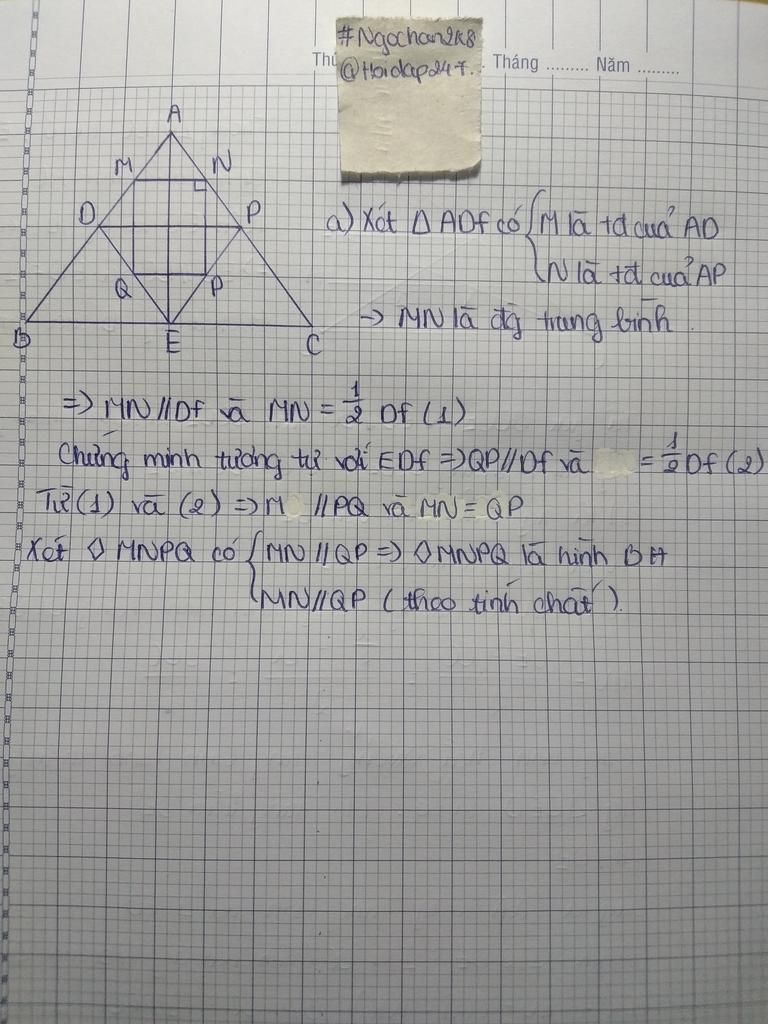 #Ngochan2k8
@Hoidap247..
Thứ Tháng ......... Năm .........
A
M N
D P
Q P
B E C
a) Xét Δ ADf có { M là tđ cuả AD
N là tđ cuả AP
→ MN là đg trung bình.
=> MN // Df và MN = 1/2 Df (1)
Chứng minh tương tự với EDf => QP // Df và = 1/2 Df (2)
Từ (1) và (2) => M // PQ và MN = QP
Xét ◇ MNPQ có { MN // QP => ◇ MNPQ là hình BH
MN // QP (theo tính chất).